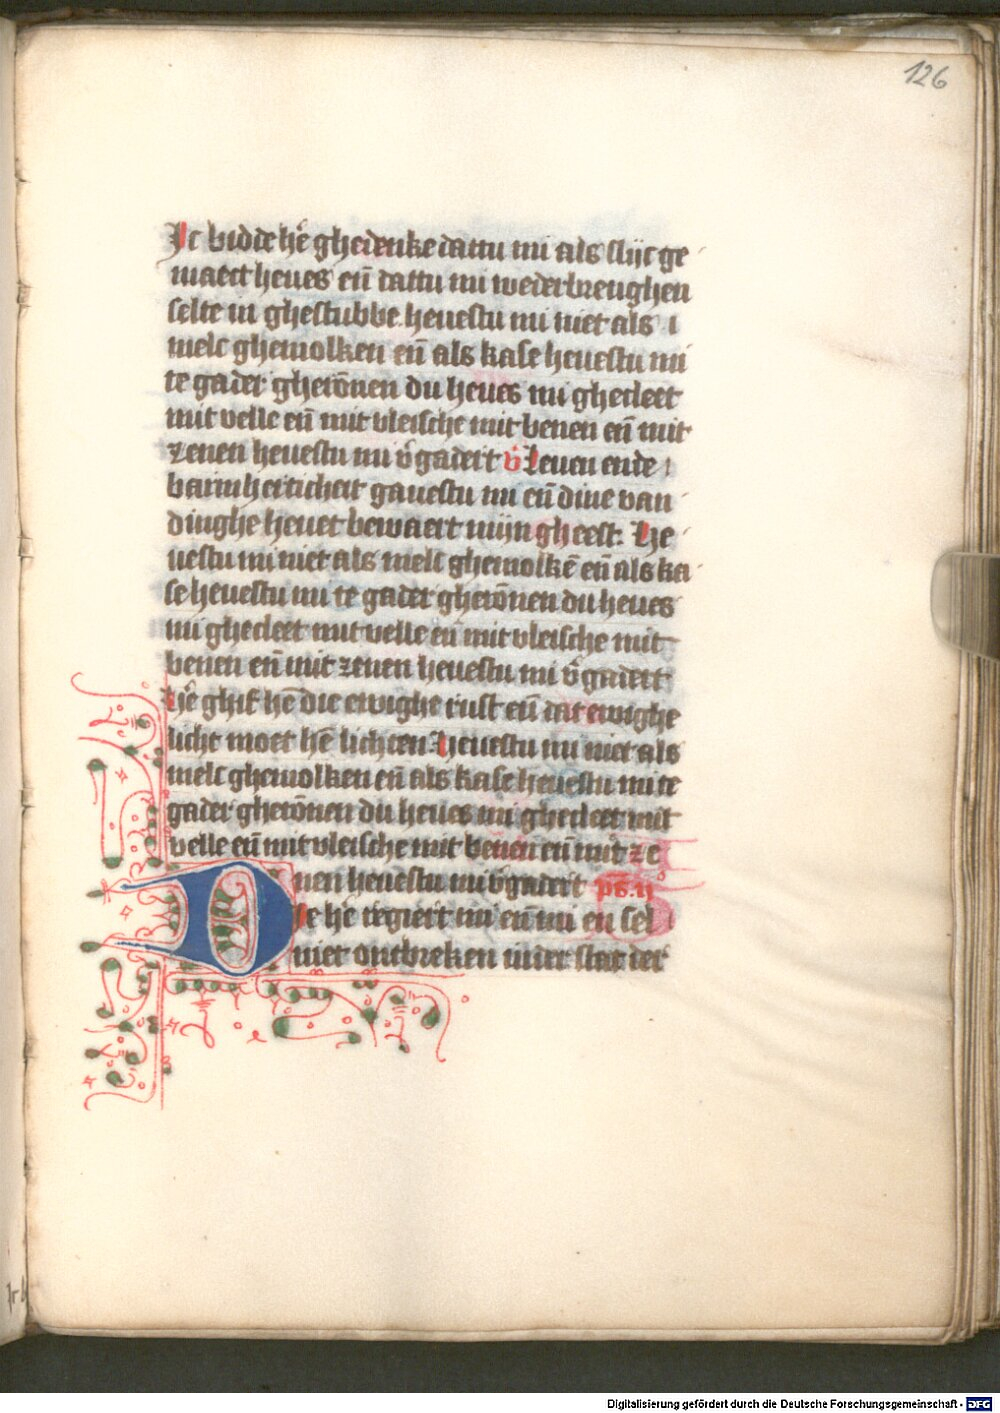 126
Ic bidde he͛ ghedenke dattu mi als slijc ge
maect heues en̄ dattu mi wederbrenghen
selte in ghestubbe heuestu mi niet als
melc ghemolken en̄ als kase heuestu mi
te gader gherōnen du heues mi ghecleet
mit velle en̄ mit vleische mit benen en̄ mit
zenen heuestu mi v͛gadert v͛ Leuen ende
barmherticheit gauestu mi en̄ dine van
dinghe heuet bewaert mijn gheest. He
uestu mi niet als melc ghemolkē en̄ als ka
se heuestu mi te gader gherōnen du heues
mi ghecleet mit velle en̄ mit vleische mit
benen en̄ mit zenen heuestu mi v͛gadert
He͛ ghif hē die ewighe rust en̄ dat ewighe
licht moet hē lichten. Heuestu mi niet als
melc ghemolken en̄ als kase heuestu mi te
gader gherōnen du heues mi ghecleet mit
velle en̄ mit vleische mit benen en̄ mit ze
nen heuestu mi v͛gadert ps̄. ij
De he͛ regiert mi en̄ mi en sel
niet ontbreken inder stat der
Digitalisierung gefördert durch die Deutsche Forschungsgemeinschaft - DFG